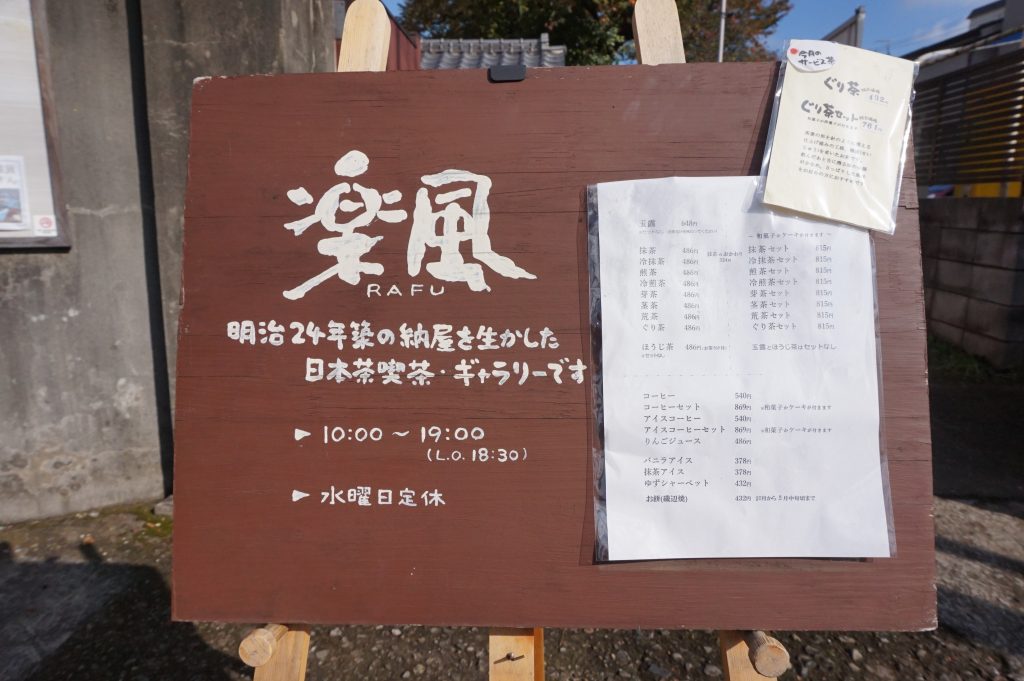 楽風
RAFU
明治24年築の納屋を生かした
日本茶喫茶・ギャラリーです
▶ 10:00 〜 19:00
(L.O. 18:30)
▶ 水曜日定休
今月の
サービス茶
ぐり茶
ぐり茶セット
玉露 648円
〜和菓子かケーキが付きます〜
抹茶 486円 抹茶セット 815円
冷抹茶 486円 冷抹茶セット 815円
煎茶 486円 煎茶セット 815円
冷煎茶 486円 冷煎茶セット 815円
芽茶 486円 芽茶セット 815円
茎茶 486円 茎茶セット 815円
荒茶 486円 荒茶セット 815円
ぐり茶 486円 ぐり茶セット 815円
ほうじ茶 486円 玉露とほうじ茶はセットなし
コーヒー 540円
コーヒーセット 869円 ※和菓子かケーキが付きます
アイスコーヒー 540円
アイスコーヒーセット 869円 ※和菓子かケーキが付きます
りんごジュース 486円
バニラアイス 378円
抹茶アイス 378円
ゆずシャーベット 432円
お餅(磯辺焼) 432円